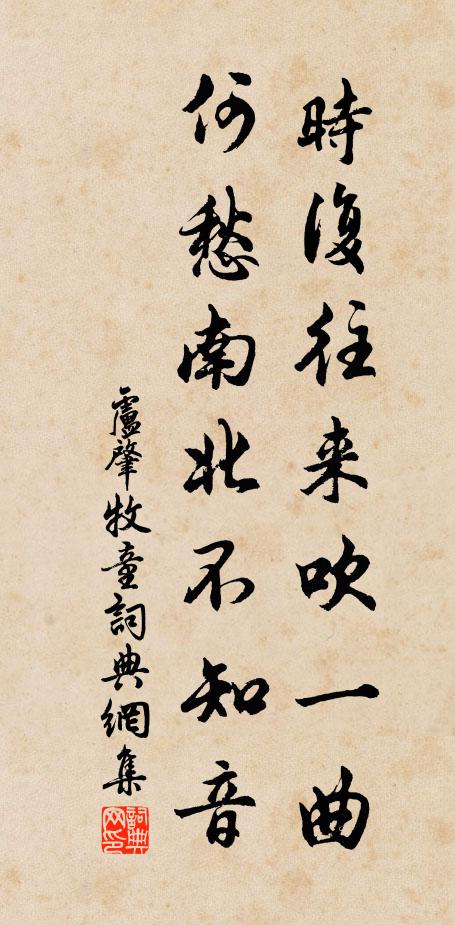 時復往来吹一曲
何愁南北不知音
盧肇牧童詞典網集
詞典
网印